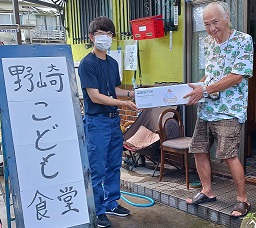 野崎
こども
食堂